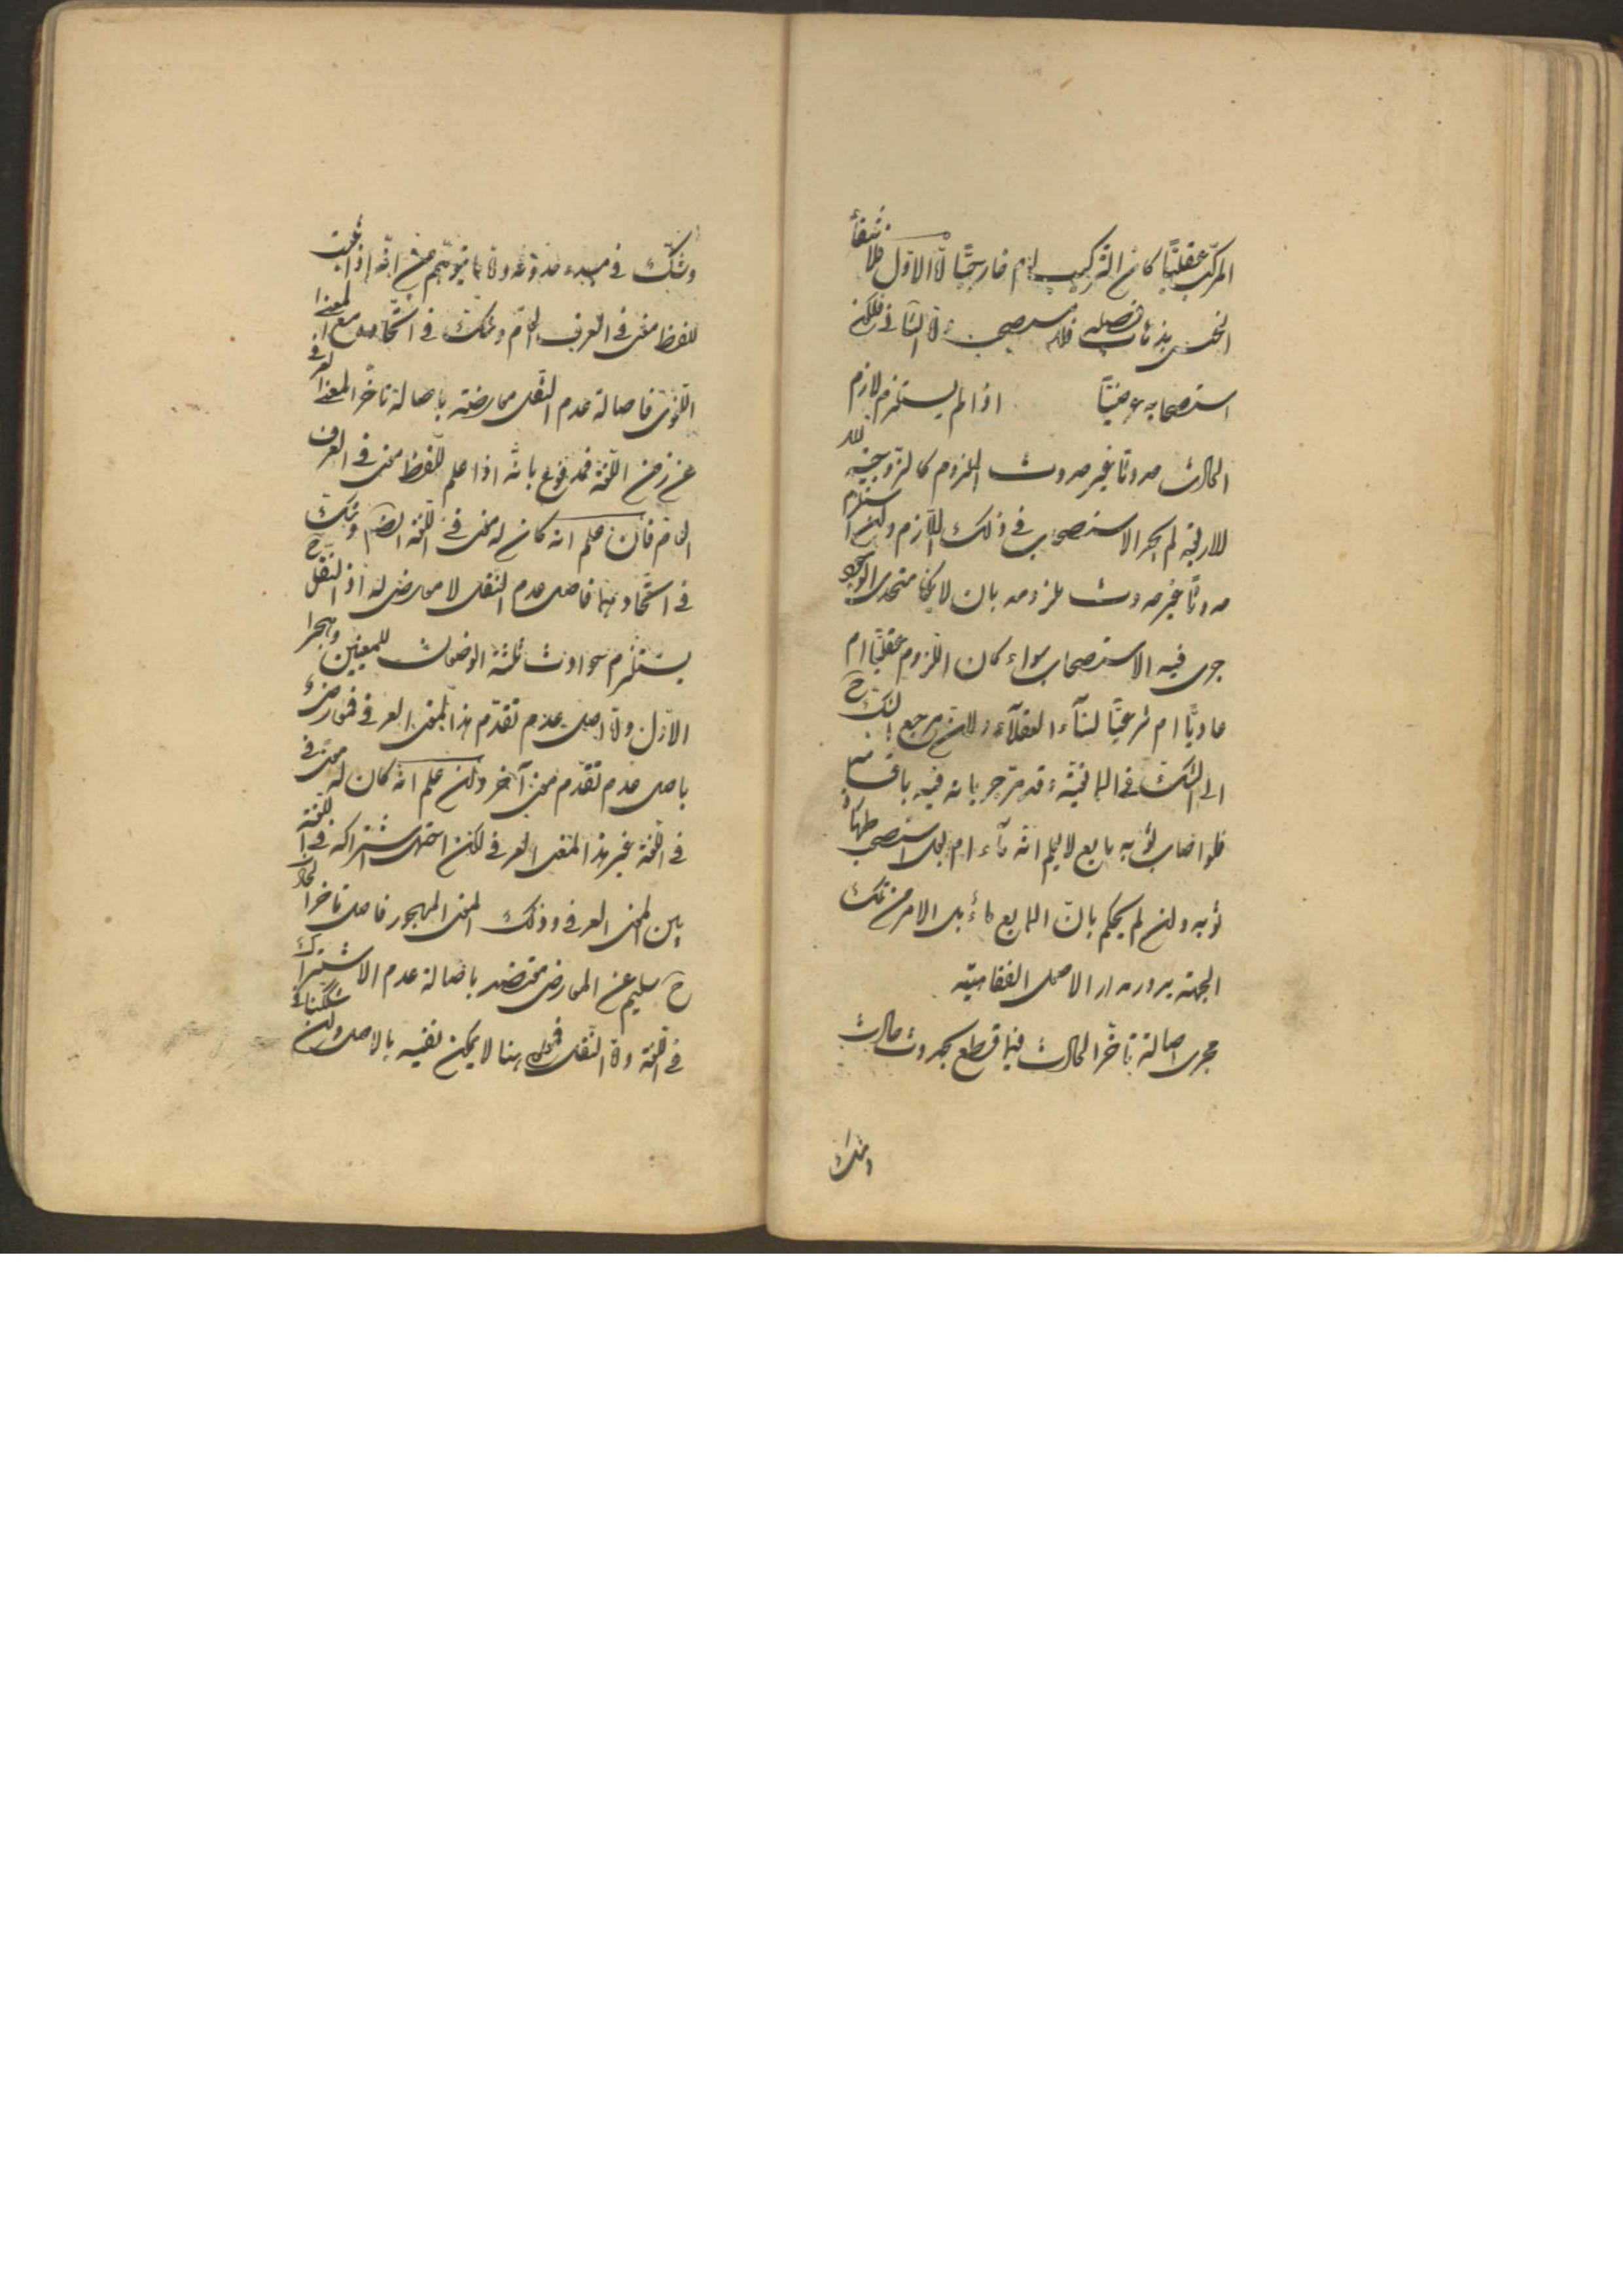 المركّب عقليّا كان التركيب ام خارجيّا امّا الاوّل فلانتفاء
الجنس بذهاب فصله فلا يستصحب وامّا الثانى فلكون
استصحابه عرضيّا اذا لم يستلزم لازم
الحادث حدوثا غير حدوث الملزوم كالزوجيّة
للاربعة لم يجر الاستصحاب فى ذلك اللازم وان استلزم
حدوثا غير حدوث ملزومه بان لا يكونا متحدى الوجود
جرى فيه الاستصحاب سواء كان اللزوم عقليّا ام
عاديّا ام شرعيّا لبناء العقلاء ولان مرجع الشك ح
الى الشك فى المانعيّة وقد مرّ جريانه فيه باقسامه
فلو اصاب ثوبه مايع لا يعلم انه ماء ام بول استصحب طهارة
ثوبه وان لم يحكم بانّ المايع ماء بل الامر من تلك
الجهة يدور مدار الاصل الفقاهيّة
مجرى اصالة تاخّر الحادث فيما قطع بحدوث حادث
وشك
وشكّ فى مبدء حدوثه وامّا ما يتوهّم من انّه اذا ثبت
للفظ معنى فى العرف العامّ وشكّ فى اتّحاده مع المعنى
اللغوى فاصالة عدم النقل معارضة باصالة تاخّر المعنى العرفى
عن زمن اللغة فمدفوع بانّه اذا علم للفظ معنى فى العرف
العام فان علم انه كان له معنى فى اللغة ايضا وشكّ
فى اتّحادهما فاصل عدم النقل لا معارض له اذ النقل ح
يستلزم حوادث ثلثة الوضعان للمعنيين وهجر
الاوّل وامّا اصل عدم تقدّم هذا المعنى العرفى فمعارض
باصل عدم تقدّم معنى آخر وان علم انّه كان له معنى
فى اللغة غير هذا المعنى العرفى لكن احتمل اشتراكه فى اللغة
بين المعنى العرفى وذلك المعنى المهجور فاصل تاخر الحادث
ح سليم عن المعارض معتضد باصالة عدم الاشتراك
فى اللغة وامّا النقل فمعلوم هنا لا يمكن نفيه بالاصل وان شككنا فى